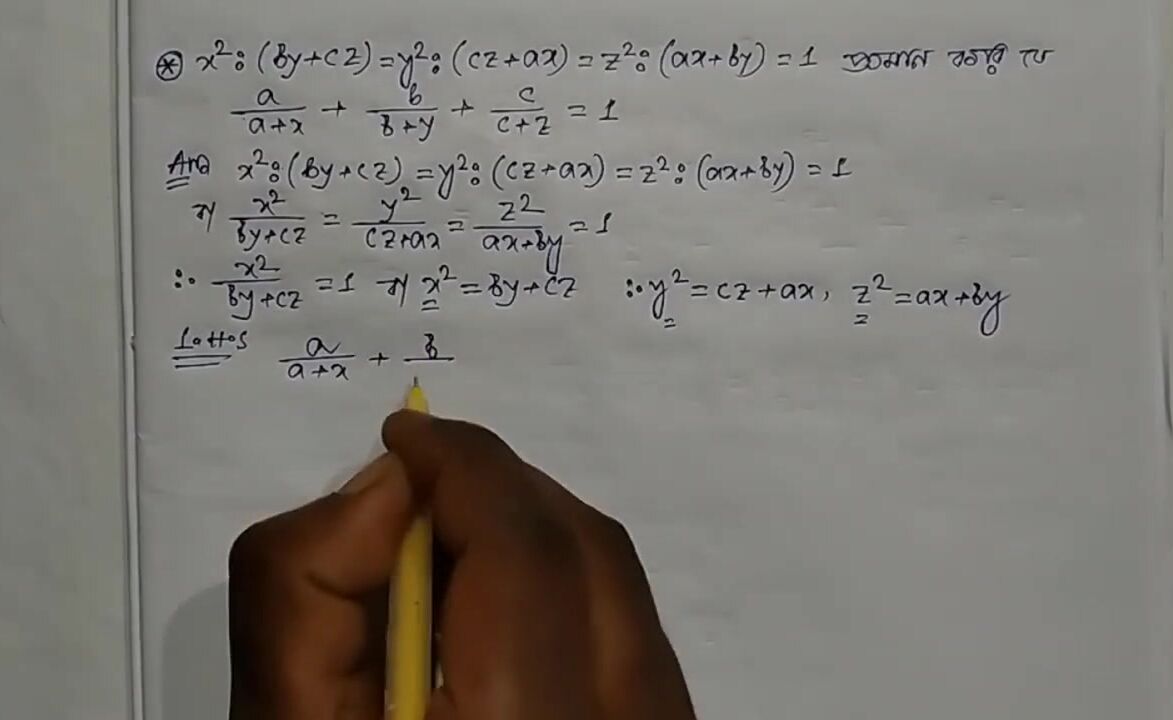 ⊛ x²:(by+cz)=y²:(cz+ax)=z²:(ax+by)=1 প্রমাণ করি যে
a/(a+x) + b/(b+y) + c/(c+z) = 1
Ans x²:(by+cz)=y²:(cz+ax)=z²:(ax+by)=1
বা x²/(by+cz) = y²/(cz+ax) = z²/(ax+by) = 1
∴ x²/(by+cz) = 1 বা x²=by+cz ∴ y²=cz+ax, z²=ax+by
L.H.S a/(a+x) + b/